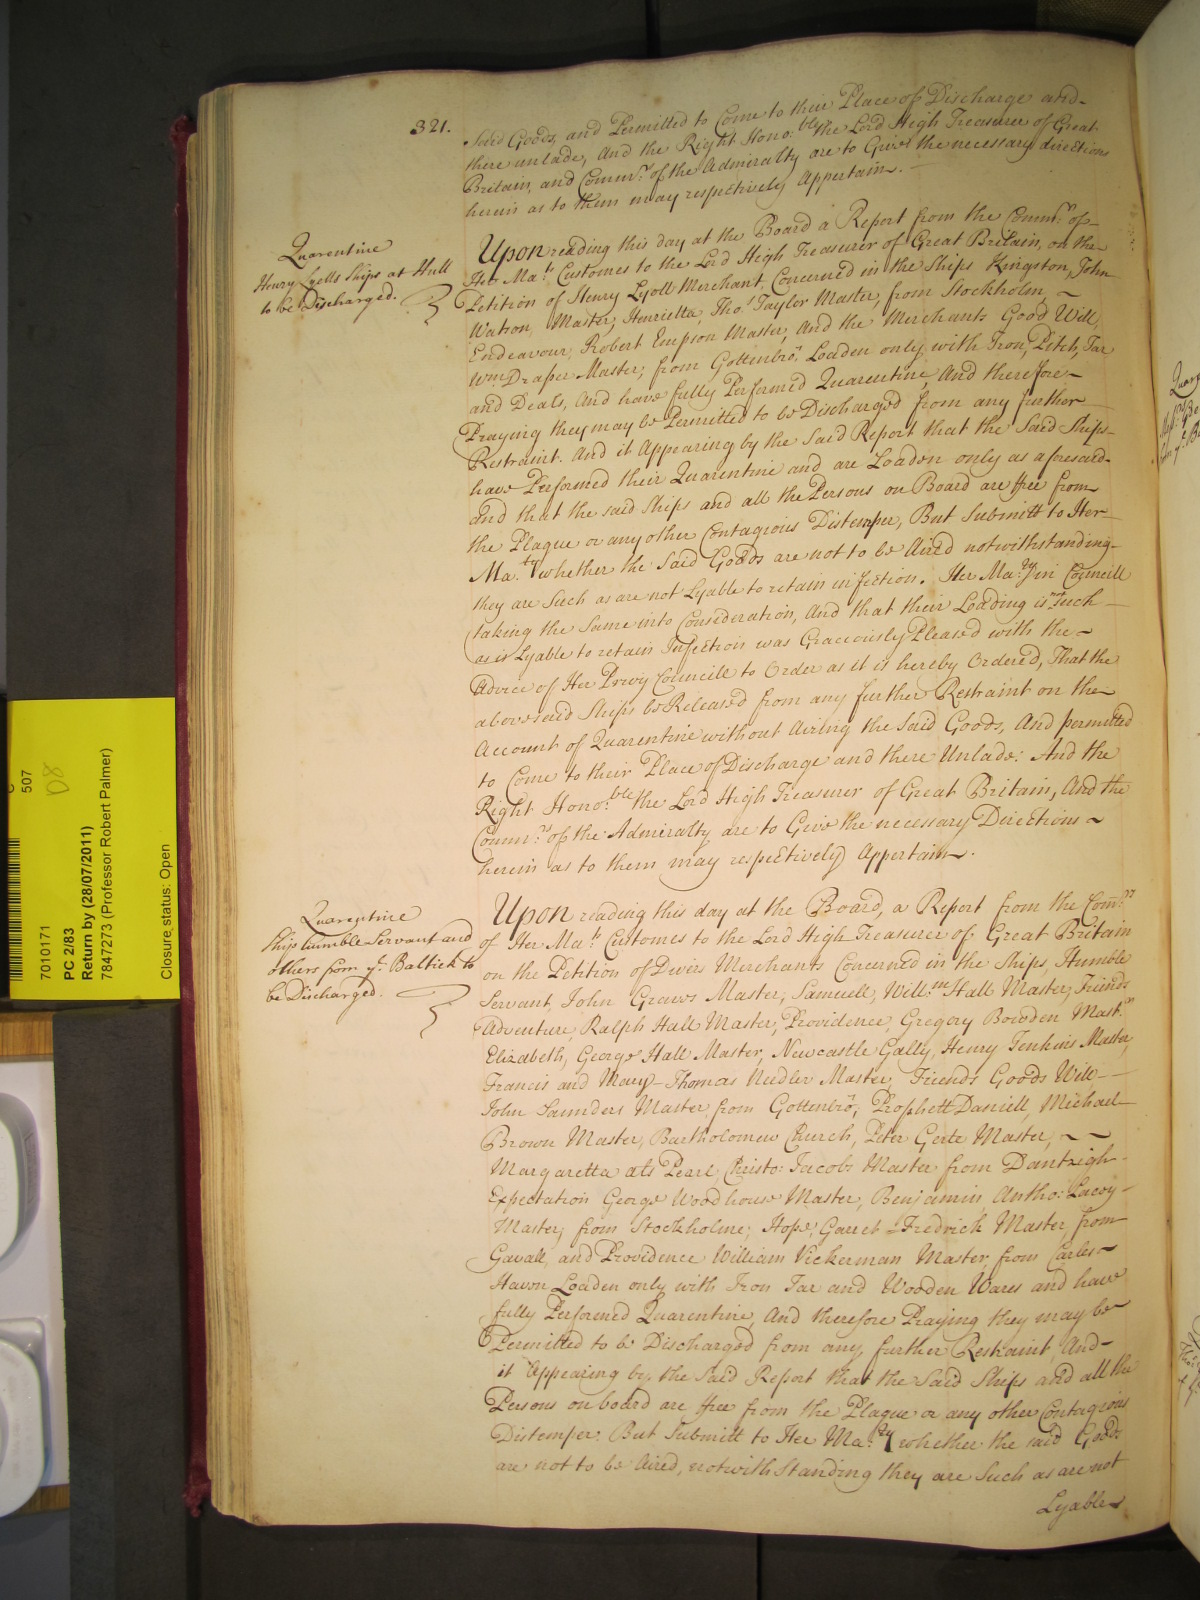 321.
Said Goods, and Permitted to Come to their Place of Discharge and
there unlade, And the Right Hono:ble the Lord High Treasurer of Great
Britain, and Comm:rs of the Admiralty are to Give the necessary directions
herein as to them may respectively Appertain.
Quarentine
Henry Lyells Ships at Hull
to be Discharged.
Upon reading this day at the Board a Report from the Comm:rs of
Her Ma:ts Customes to the Lord High Treasurer of Great Britain, on the
Petition of Henry Lyell Merchant, Concerned in the Ships Kingston, John
Watson, Master, Henrietta, Tho:s Taylor Master, from Stockholm,
Endeavour, Robert Empson Master, And the Merchants Good Will,
Wm Draper Master, from Gottenbro, Loaden only with Iron, Pitch, Tar
and Deals, And have fully Performed Quarentine, And therefore
Praying they may be Permitted to be Discharged from any further
Restraint. And it Appearing by the Said Report that the Said Ships
have Performed their Quarentine and are Loaden only as aforesaid
and that the said Ships and all the Persons on Board are free from
the Plague or any other Contagious Distemper, But Submitt to Her
Ma:ty whether the Said Goods are not to be Aired notwithstanding
they are Such as are not Lyable to retain infection. Her Ma:ty in Councill
taking the Same into Consideration, And that their Loading is not Such
as is Lyable to retain Infection was Graciously Pleased with the
Advice of Her Privy Councill to Order as it is hereby Ordered, That the
abovesaid Ships be Released from any further Restraint on the
Account of Quarentine without Airing the Said Goods, And permitted
to Come to their Place of Discharge and there Unlade: And the
Right Hono:ble the Lord High Treasurer of Great Britain, And the
Comm:rs of the Admiralty are to Give the necessary Directions
herein as to them may respectively Appertain.
Quarentine
Ship humble Servant and
others from ye Baltick to
be Discharged.
Upon reading this day at the Board, a Report from the Com:rs
of Her Ma:ts Customes to the Lord High Treasurer of Great Britain
on the Petition of Divers Merchants Concerned in the Ships, Humble
Servant, John Graves Master, Samuell, Will:m Hall Master, Friends
Adventure, Ralph Hall Master, Providence, Gregory Bowden Mast:r
Elizabeth, George Hall Master, Newcastle Gally, Henry Jenkins Master,
Francis and Mary Thomas Needler Master, Friends Goods Will
John Saunders Master from Gottenbro, Prophett Daniell, Michael
Brown Master, Bartholomew Church, Peter Gerte Master,
Margaretta als Pearl, Christo: Jacobs Master from Dantzigh
Expectation George Woodhouse Master, Benjamin, Antho: Lacoy
Master, from Stockholme; Hope, Garret Fredrick Master, from
Gavall, and Providence William Vickerman Master, from Carles
Haven Loaden only with Iron Tar and Wooden Wares and have
fully Performed Quarentine, And therefore Praying they may be
Permitted to be Discharged from any further Restraint, And
it Appearing by the Said Report that the Said Ships and all the
Persons on board are free from the Plague or any other Contagious
Distemper. But Submitt to Her Ma:ty whether the said Goods
are not to be Aired, notwithstanding they are Such as are not
Lyable
507
D8
7010171
PC 2/83
Return by (28/07/2011)
7847273 (Professor Robert Palmer)
Closure status: Open